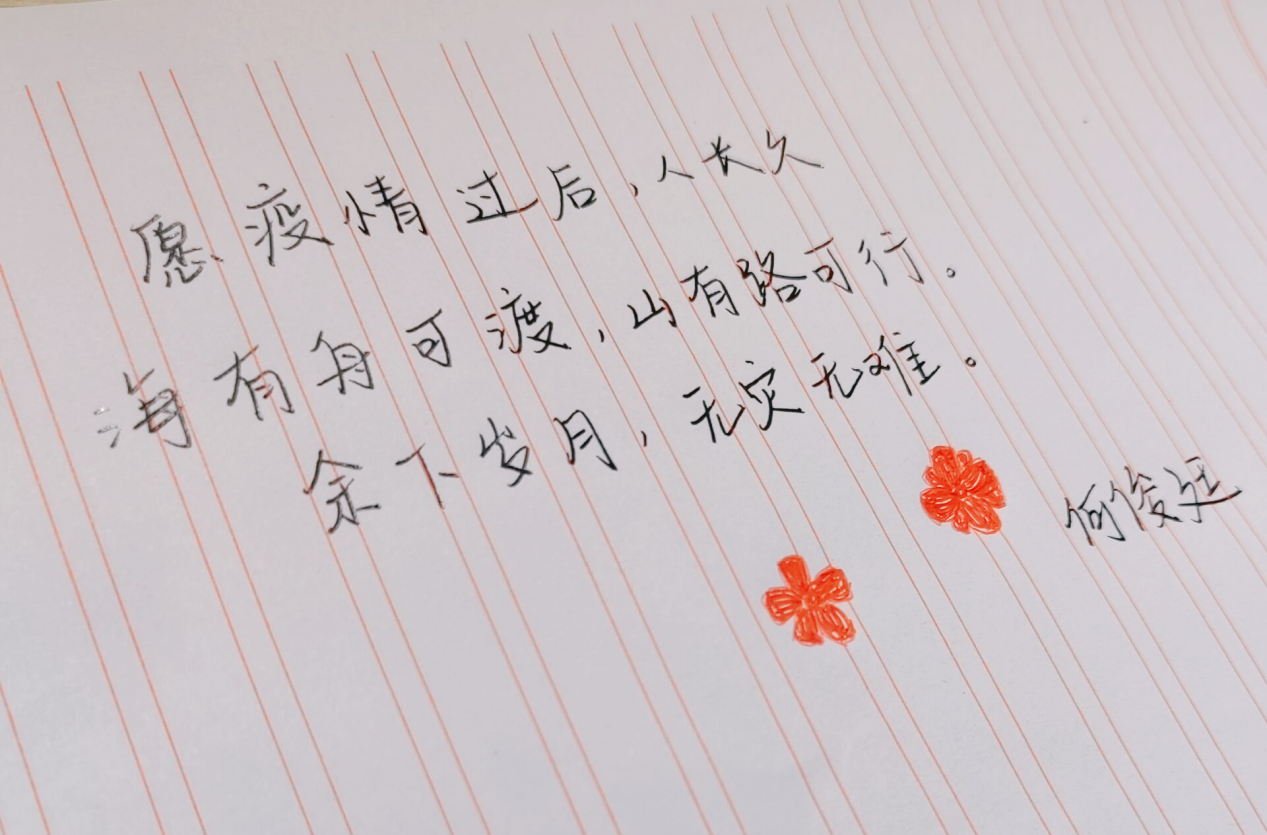 愿疫情过后，人长久
海有舟可渡，山有路可行。
余下岁月，无灾无难。
何俊廷